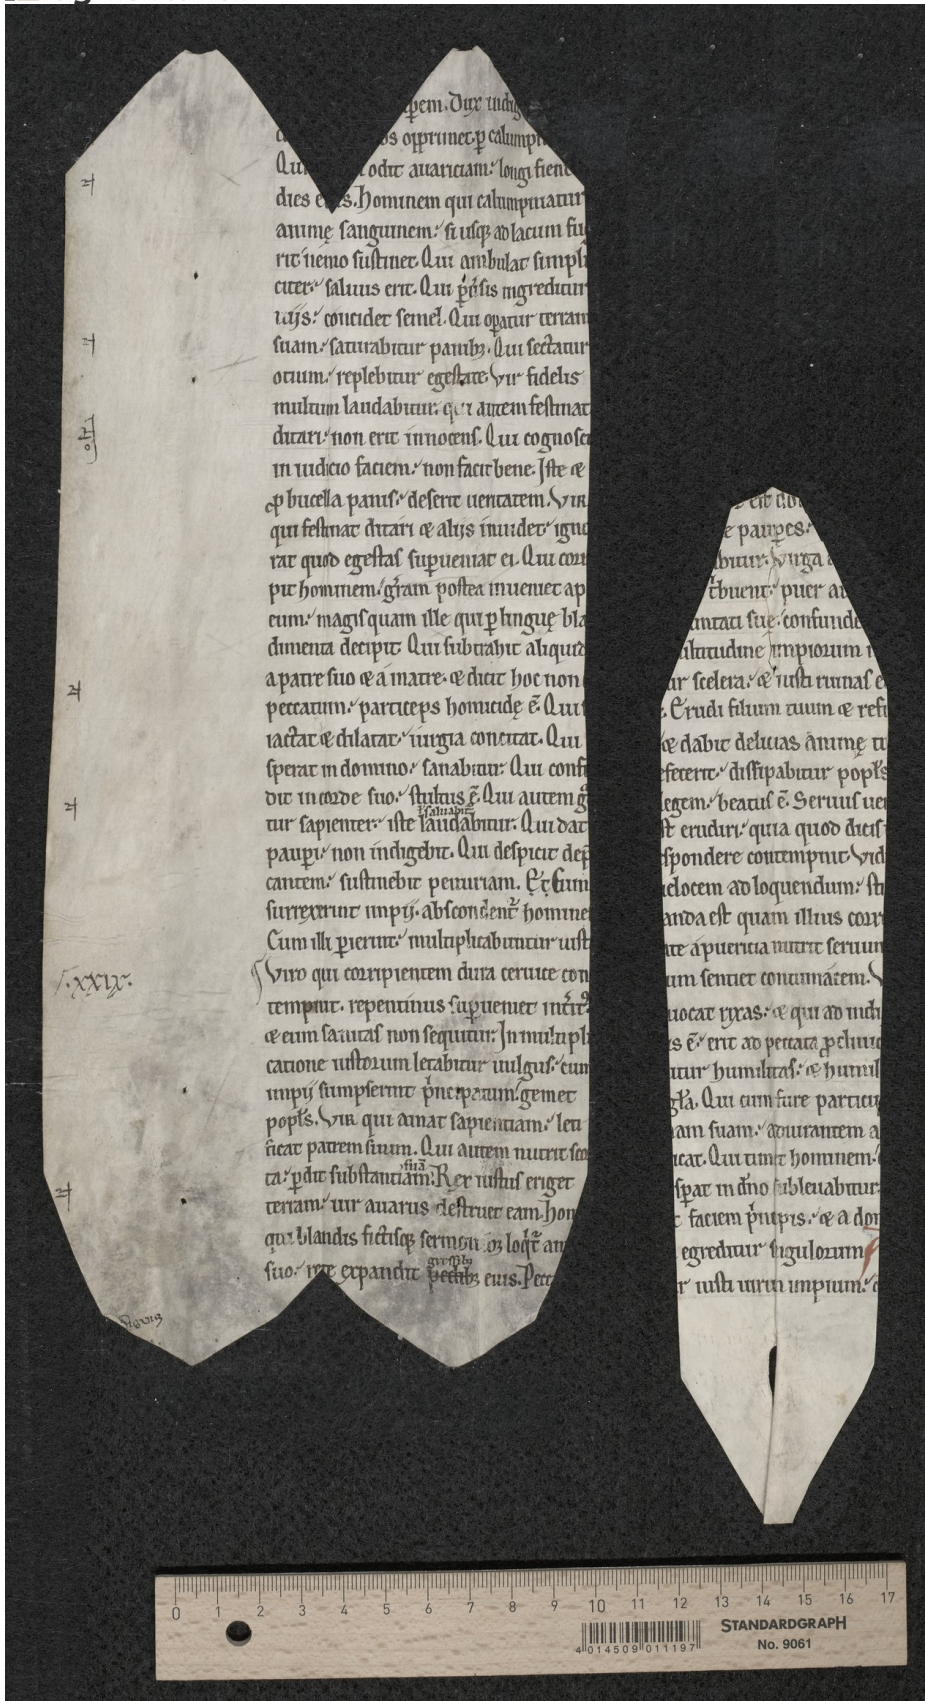 pem. Dux indig
os opprimet ꝑ calumpn
Qui odit auariciam: longi fient
dies eius. Hominem qui calumpniatur
animę sanguinem: si usq; ad lacum fug
rit nemo sustinet. Qui ambulat simpli
citer: saluus erit. Qui ingreditur
uijs: concidet semel. Qui oꝑatur terram
suam: saturabitur panib;. Qui sectatur
otium: replebitur egestate. Vir fidelis
multum laudabitur: qui autem festinat
ditari: non erit innocens. Qui cognosci
in iudicio faciem: non facit bene. Iste &
ꝓ bucella panis: deserit ueritatem. Vir
qui festinat ditari & alijs inuidet: igno
rat quod egestas suꝑueniat ei. Qui corri
pit hominem: gr̄am postea inueniet ap
eum: magis quam ille qui ꝑ linguę bla
dimenta decipit. Qui subtrahit aliquid
a patre suo & a matre. & dicit hoc non
peccatum: particeps homicidę ē. Qui
iactat & dilatat: iurgia concitat. Qui
sperat in domino: sanabitur. Qui confi
dit in corde suo: stultus ē. Qui autem g
tur sapienter: iste laudabitur. Qui dat
pauꝑi: non indigebit. Qui despicit dep̄
cantem: sustinebit penuriam. Et Cum
surrexerint impij. abscondent̄ homine
Cum illi ꝑierint: multiplicabuntur iusti
.XXIX.
Viro qui corripientem dura ceruice con
tempnit. repentinus suꝑueniet
& eum sanitas non sequitur. In multipli
catione iustorum letabitur uulgus. cum
impij sumpserint gemet
popl̄s. Vir qui amat sapientiam: leti
ficat patrem suum. Qui autem nutrit sco
ta: ꝑdit substantiam. Rex iustus eriget
suā
terram: uir auarus destruet eam. Hom
qui blandis fictisq; sermonib; loqt̄ am
suo: rete expandit pedib; eius. Pecc
gressib;
e pauꝑes:
bitur. Virga
t̄buent. puer
untati sue: confunde
ultitudine impiorum
ur scelera: & iusti ruinas e
. Erudi filium tuum & refi
& dabit delicias animę tu
efecerit: dissipabitur popl̄s
legem: beatus ē. Seruus ue
st erudiri: quia quod dicis
spondere contempnit. Vid
uelocem ad loquendum: st
anda est quam illius corr
ate a puericia nutrit seruum
um sentiet contumacem. V
uocat rixas: & qui ad indi
s ē: erit ad peccata ꝓcliuio
itur humilitas: & humil
gl̄a. Qui cum fure particip
am suam: adiurantem a
icat. Qui timet hominem:
sꝑat in dn̄o subleuabitur.
t faciem & a dom
egreditur sigulorum
r iusti uirum impium: